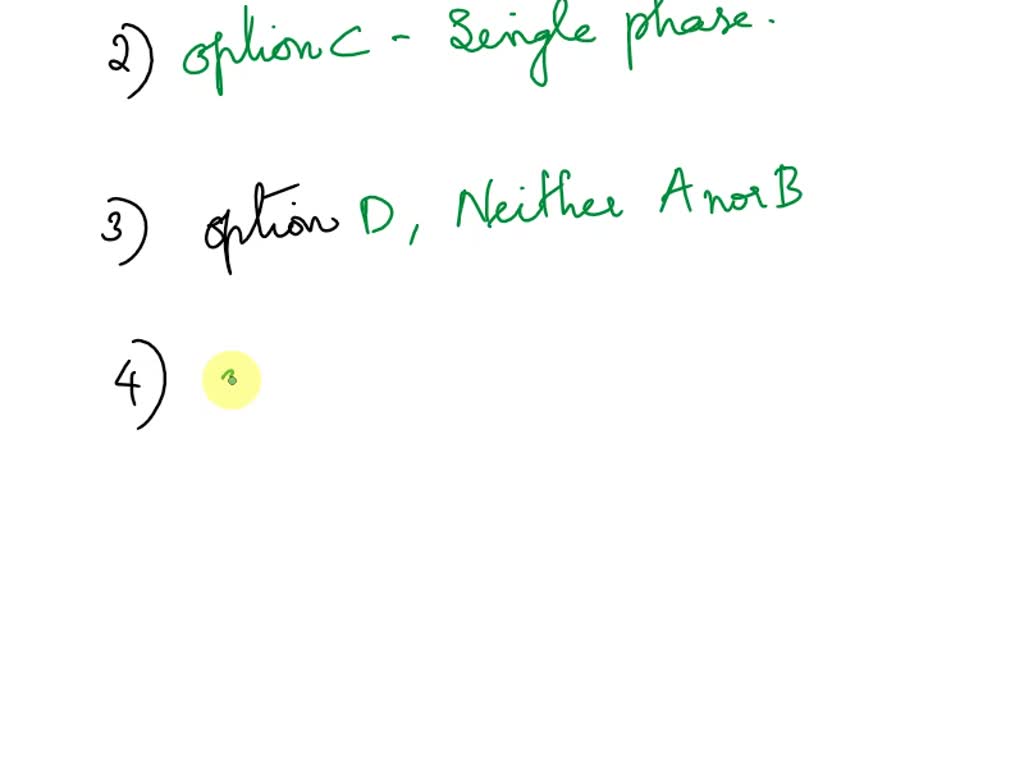 2) option C - Single phase.
3) option D, Neither A nor B
4)